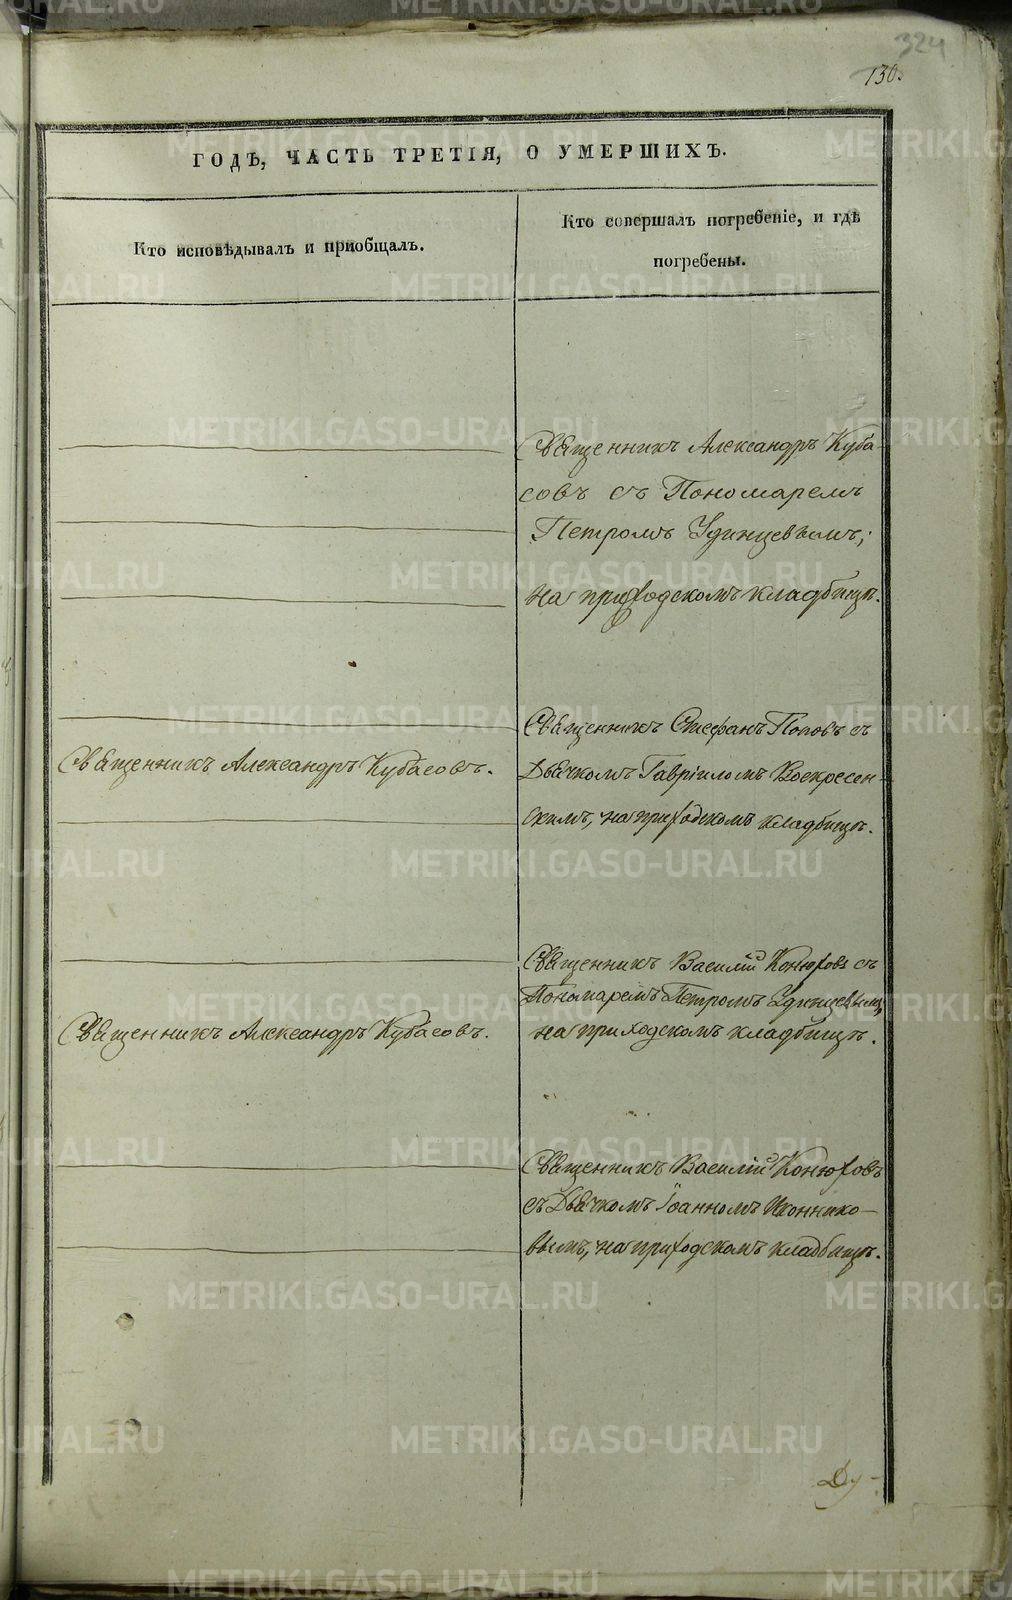 324
130.
ГОДѢ, ЧАСТЬ ТРЕТІЯ, О УМЕРШИХЪ.
Кто исповѣдывалъ и пріобщалъ.
Кто совершалъ погребеніе, и гдѣ
погребены.
Священникъ Александръ Куба-
совъ съ Пономаремъ
Петромъ Удинцевымъ;
на приходскомъ кладбищѣ.
Священникъ Стефанъ Поповъ съ
Священникъ Александръ Кубасовъ.
Дьячкомъ Гавріиломъ Воскресен-
скимъ, на приходскомъ кладбищѣ.
Священникъ Василій Конюховъ съ
Пономаремъ Петромъ Удинцевымъ,
Священникъ Александръ Кубасовъ.
на приходскомъ кладбищѣ.
Священникъ Василій Конюховъ
съ Дьячкомъ Іоанномъ Иконнико-
вымъ, на приходскомъ кладбищѣ.
Ду-
METRIKI.GASO-URAL.RU